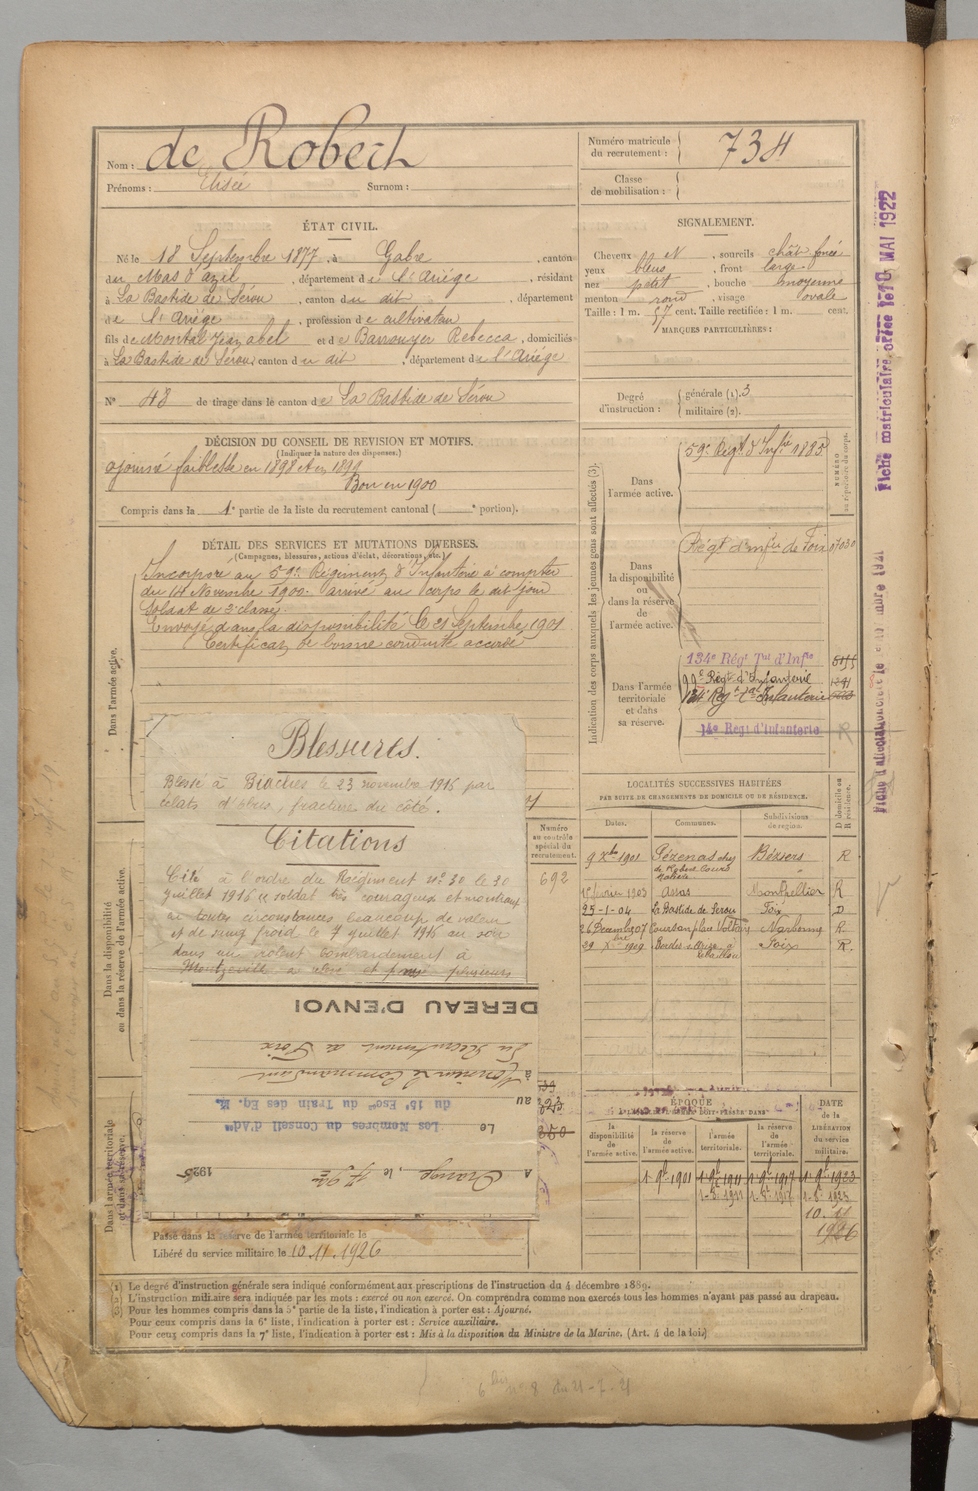 Nom : de Robert
Prénoms : Elisée Surnom :
Numéro matricule du recrutement : 734
Classe de mobilisation :
ÉTAT CIVIL.
Né le 18 Septembre 1877, à Gabre, canton
du Mas d'azil, département de l'Ariège, résidant
à La Bastide de Sérou, canton du dit, département
de l'Ariège, profession de cultivateur
fils de Montal Jean abel et de Barrouyer Rebecca, domiciliés
à La Bastide de Sérou, canton du dit, département de l'Ariège
N° 48 de tirage dans le canton de La Bastide de Sérou
SIGNALEMENT.
Cheveux et N, sourcils chât foncé
yeux bleus, front large
nez petit, bouche moyenne
menton rond, visage ovale
Taille : 1 m. 57 cent. Taille rectifiée : 1 m. cent.
MARQUES PARTICULIÈRES :
Degré d'instruction : générale (1). 3
militaire (2).
DÉCISION DU CONSEIL DE REVISION ET MOTIFS.
(Indiquer la nature des dispenses.)
ajourné faiblesse en 1898 et en 1899
Bon en 1900
Compris dans la 1e partie de la liste du recrutement cantonal ( e portion).
DÉTAIL DES SERVICES ET MUTATIONS DIVERSES.
(Campagnes, blessures, actions d'éclat, décorations, etc.)
Dans l'armée active.
Incorporé au 59e Régiment d'Infanterie à compter
du 14 Novembre 1900. arrivé au corps le dit jour
Soldat de 2e classe.
Envoyé dans la disponibilité le 21 Septembre 1901
Certificat de bonne conduite accordé
Blessures.
Blessé à Biaches le 23 novembre 1916 par
éclats d'obus, fracture du côté.
Citations
Cité à l'ordre du Régiment n° 30 le 30
juillet 1916 "soldat très courageux et montrant
en toutes circonstances beaucoup de valeur
et de sang froid le 7 juillet 1916 au soir
dans un violent bombardement à
Montzeville a
plusieurs
Numéro au contrôle spécial du recrutement.
692
DEREAU D'ENVOI
Monsieur le Commandant
du Recrutement de Foix
à
au
Les Membres du Conseil d'Adon
du 15e Escon du Train des Eq. M.
Le
A Orange, le 1925
Dans la disponibilité ou dans la réserve de l'armée active.
Dans l'armée territoriale et dans sa réserve.
Passé dans la réserve de l'armée territoriale le
Libéré du service militaire le 10.11.1926
Indication des corps auxquels les jeunes gens sont affectés (3).
Dans l'armée active.
59e Régt d'Infie 1885
NUMÉRO au répertoire du corps.
Dans la disponibilité ou dans la réserve de l'armée active.
Régt d'infie de Foix 07030
Dans l'armée territoriale et dans sa réserve.
134e Régt Tal d'Infie
99e Régt d'Infanterie
134e Régt tal Infanterie
14e Régt d'Infanterie R
LOCALITÉS SUCCESSIVES HABITÉES
PAR SUITE DE CHANGEMENTS DE DOMICILE OU DE RÉSIDENCE.
Dates. Communes. Subdivisions de région. D domicile ou R résidence.
9 Xbre 1901 Pézenas chez de Robert Cours Béziers R
1er février 1903 Assas Montpellier R
25-1-04 La Bastide de Serou Foix D
26 Décemb 1907 Coursan place Voltaire Narbonne R.
29 Xbre 1909 Foix R.
ÉPOQUE
la disponibilité de l'armée active. la réserve de l'armée active. l'armée territoriale. la réserve de l'armée territoriale.
DATE de la LIBÉRATION du service militaire.
10. 11
1926
(1) Le degré d'instruction générale sera indiqué conformément aux prescriptions de l'instruction du 4 décembre 1889.
(2) L'instruction militaire sera indiquée par les mots : exercé ou non exercé. On comprendra comme non exercés tous les hommes n'ayant pas passé au drapeau.
(3) Pour les hommes compris dans la 5e partie de la liste, l'indication à porter est : Ajourné.
Pour ceux compris dans la 6e liste, l'indication à porter est : Service auxiliaire.
Pour ceux compris dans la 7e liste, l'indication à porter est : Mis à la disposition du Ministre de la Marine. (Art. 4 de la loi)
Fiche matriculaire créée le 10 MAI 1922